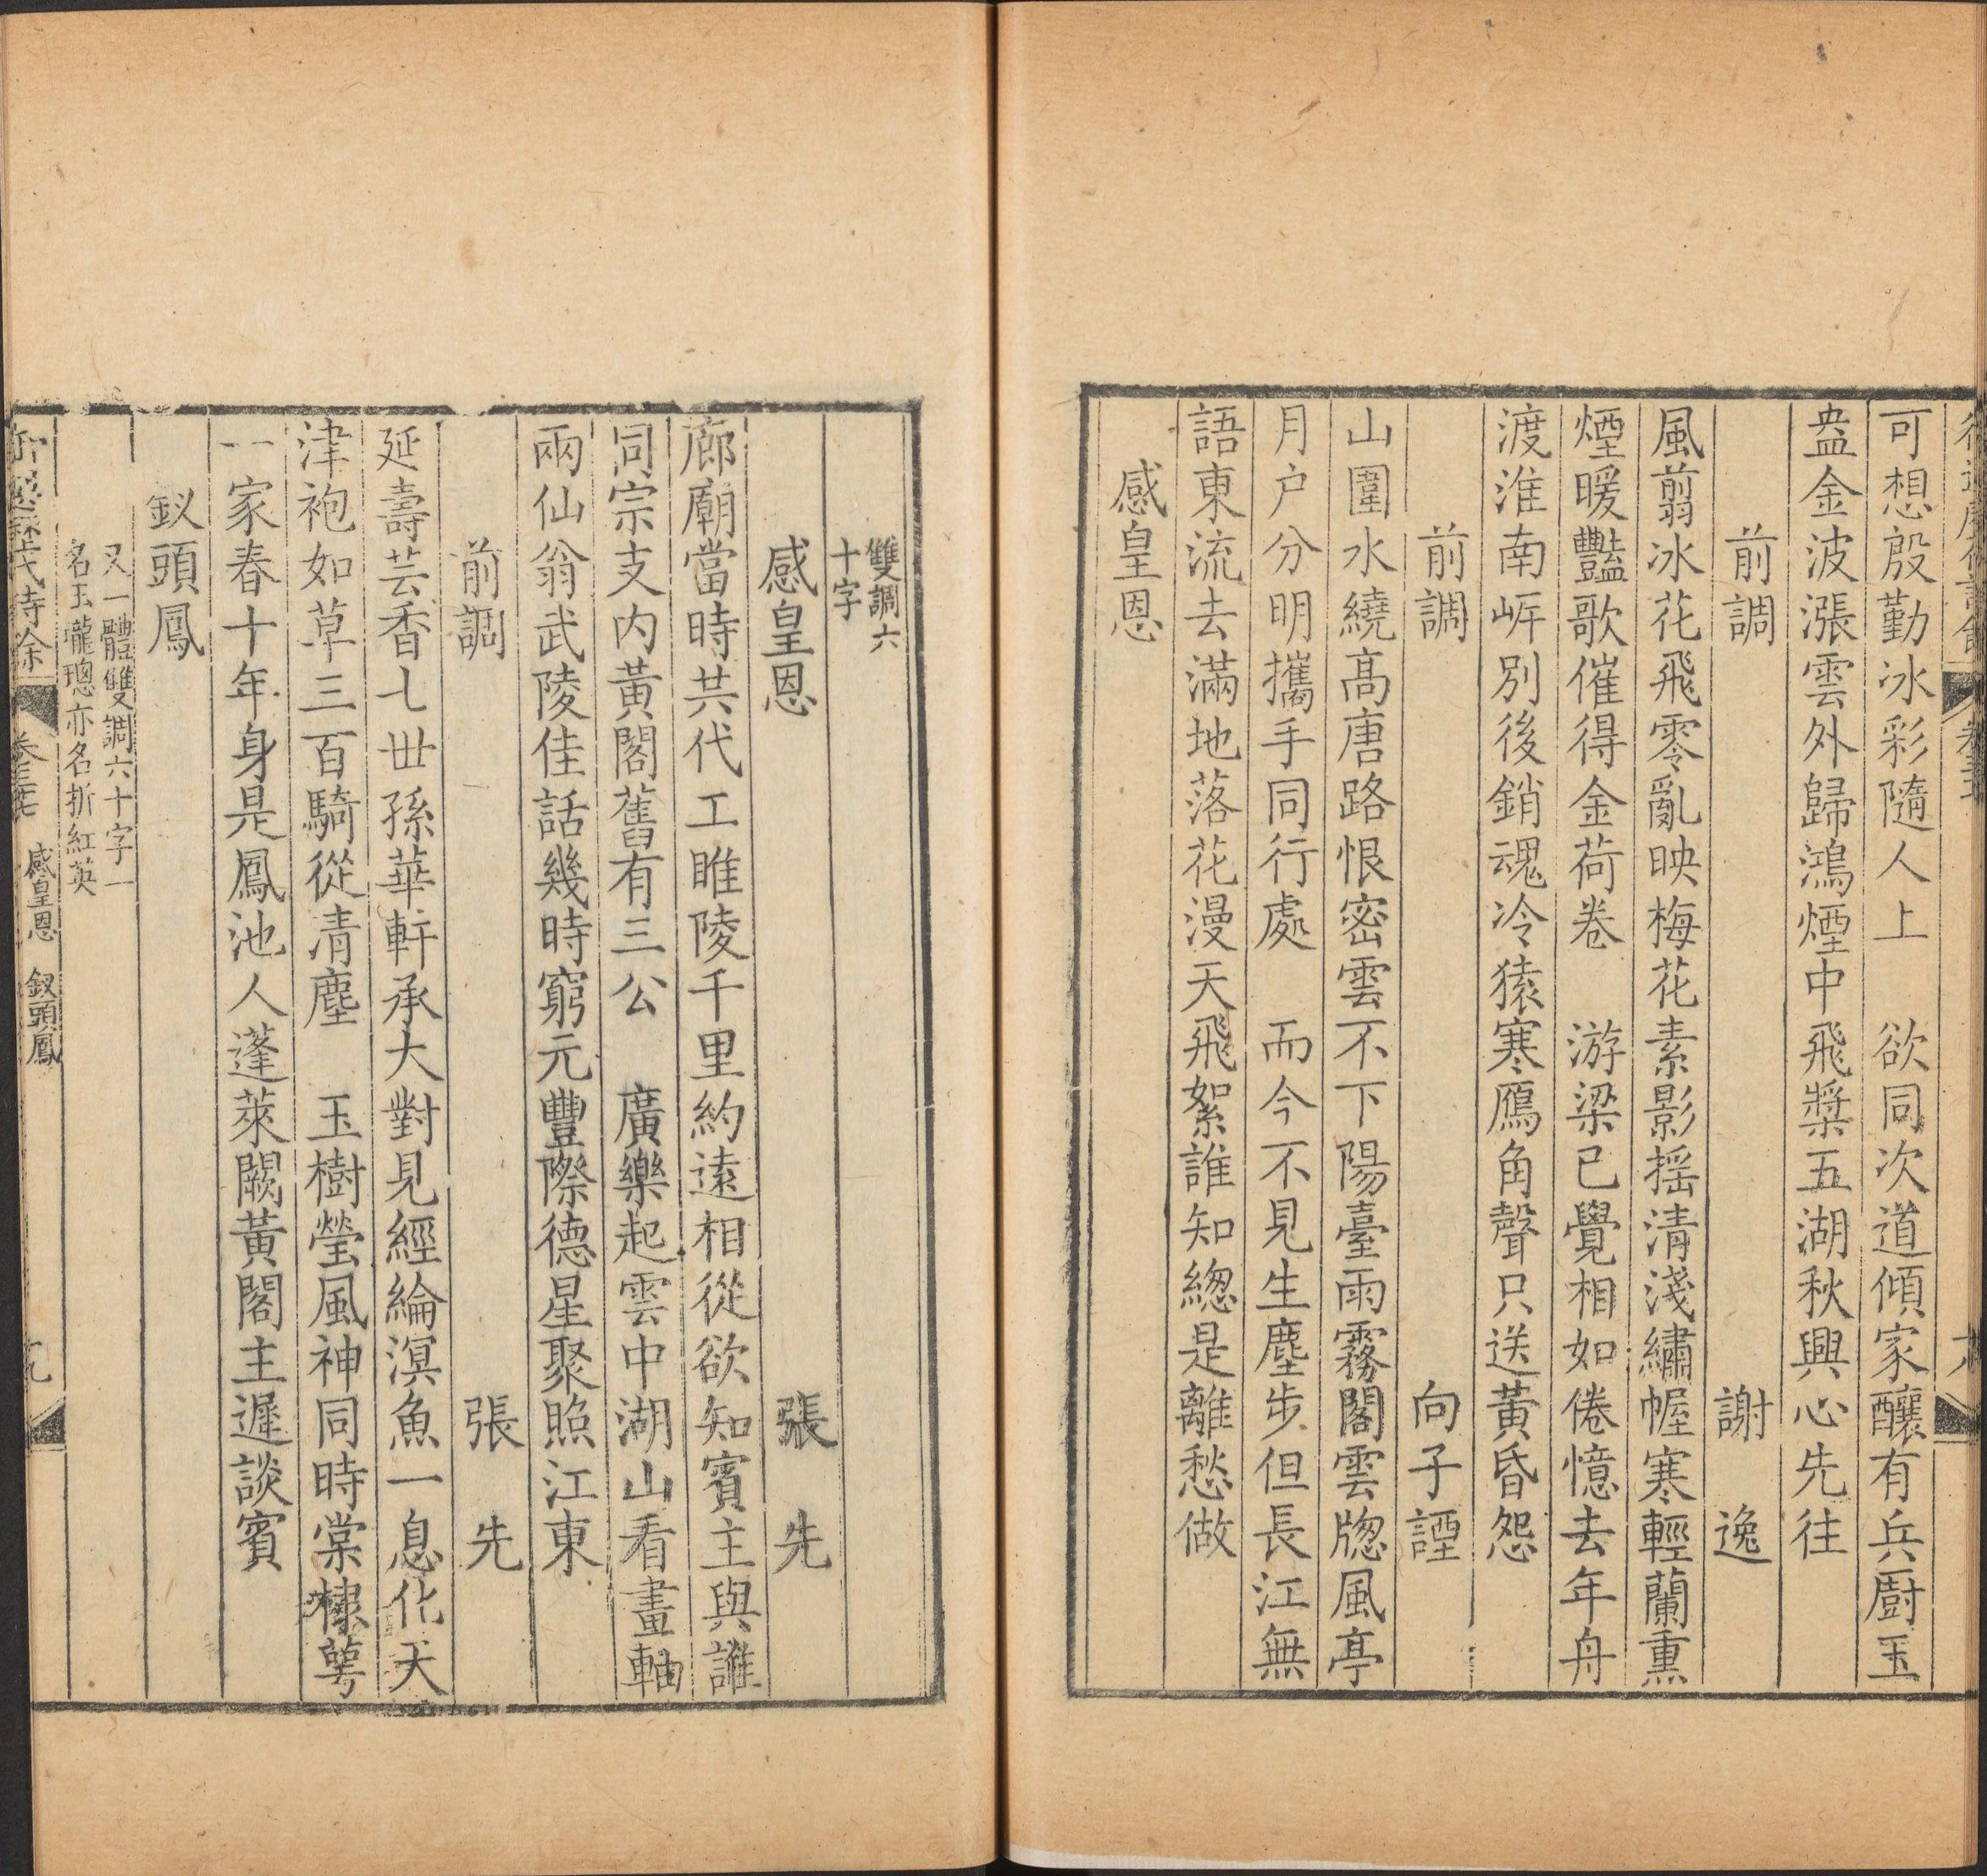 可想殷勤冰彩隨人上　欲同次道傾家釀有兵廚玉
盎金波漲雲外歸鴻煙中飛槳五湖秋興心先往
前調　謝逸
風翦冰花飛零亂映梅花素影搖清淺繡幄寒輕蘭熏
煙暖豔歌催得金荷卷　游梁已覺相如倦憶去年舟
渡淮南岸別後銷魂冷猿寒鴈角聲只送黃昏怨
前調　向子諲
山圍水繞高唐路恨密雲不下陽臺雨霧閣雲牕風亭
月户分明攜手同行處　而今不見生塵步但長江無
語東流去滿地落花漫天飛絮誰知總是離愁做
感皇恩
雙調六
十字
感皇恩　張先
廊廟當時共代工睢陵千里約遠相從欲知賓主與誰
同宗支内黃閣舊有三公　廣樂起雲中湖山看畫軸
兩仙翁武陵佳話幾時窮元豐際德星聚照江東
前調　張先
延壽芸香七世孫華軒承大對見經綸溟魚一息化天
津袍如草三百騎從清塵　玉樹瑩風神同時棠棣萼
一家春十年身是鳳池人蓬萊闕黃閣主遲談賓
釵頭鳳
又一體雙調六十字一
名玉瓏璁亦名折紅英
御選歷代詩餘　卷三十七　感皇恩　釵頭鳳